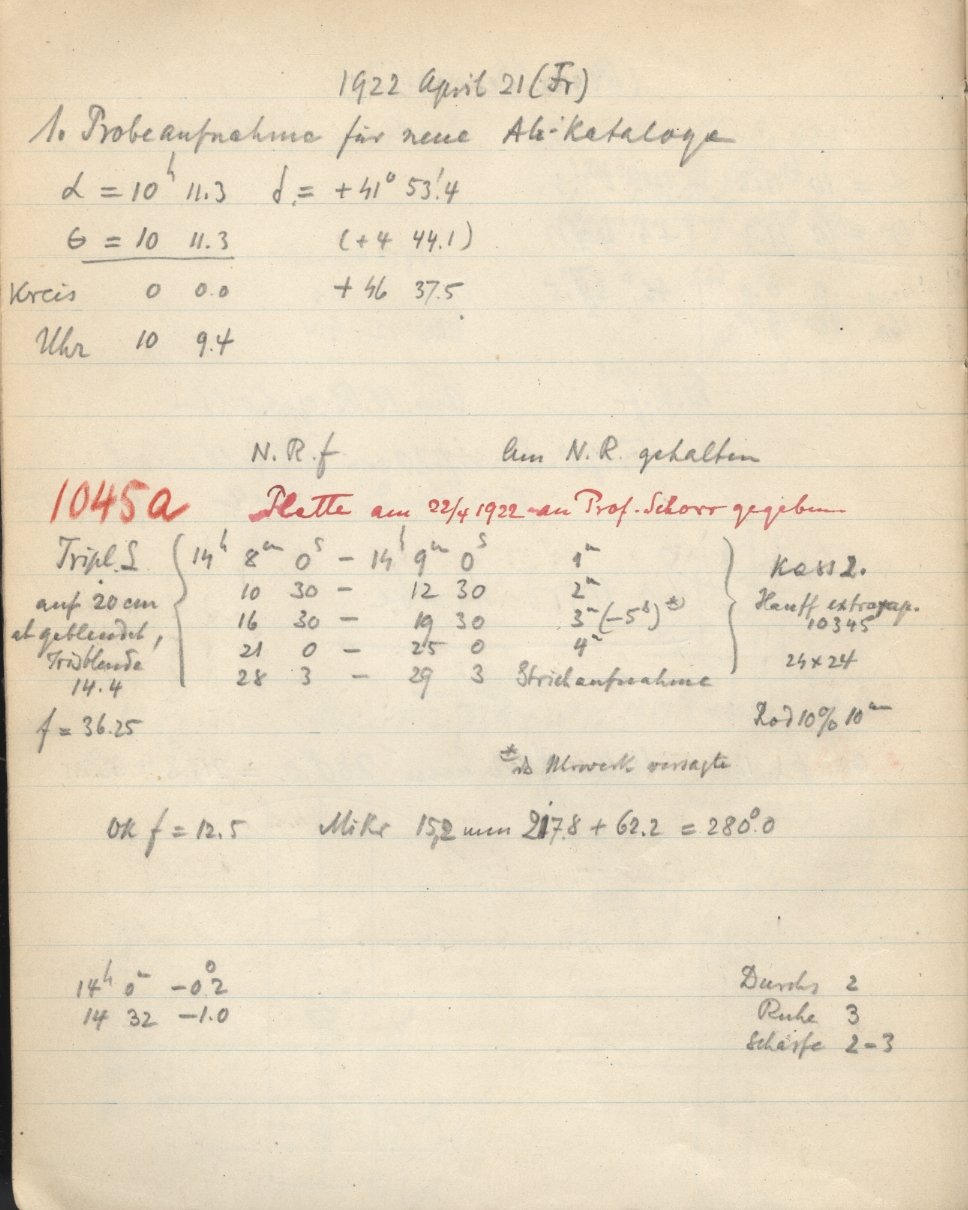 1922 April 21 (Fr)
1. Probeaufnahme für neue AG-Kataloge
α = 10ʰ 11.3 δ = +41° 53'.4
θ = 10 11.3 (+4 44.1)
Kreis 0 0.0 +46 37.5
Uhr 10 9.4
N.R.f Am N.R. gehalten
1045a Platte am 22/4 1922 an Prof. Schorr gegeben
Tripl. L 14ʰ 8ᵐ 0ˢ – 14ʰ 9ᵐ 0ˢ 1ᵐ Kass 2.
auf 20 cm 10 30 – 12 30 2ᵐ Hauff extrarap.
abgeblendet, 16 30 – 19 30 3ᵐ (–5ˢ)* 10345
Irisblende 21 0 – 25 0 4ᵐ 24×24
14.4 28 3 – 29 3 Strichaufnahme
f = 36.25 Rod 10% 10ᵐ
* Uhrwerk versagte
OK f = 12.5 Mikr 15,2 mm 217.8 + 62.2 = 280°.0
14ʰ 0ᵐ –0°.2 Durchs 2
14 32 –1.0 Ruhe 3
Schärfe 2–3